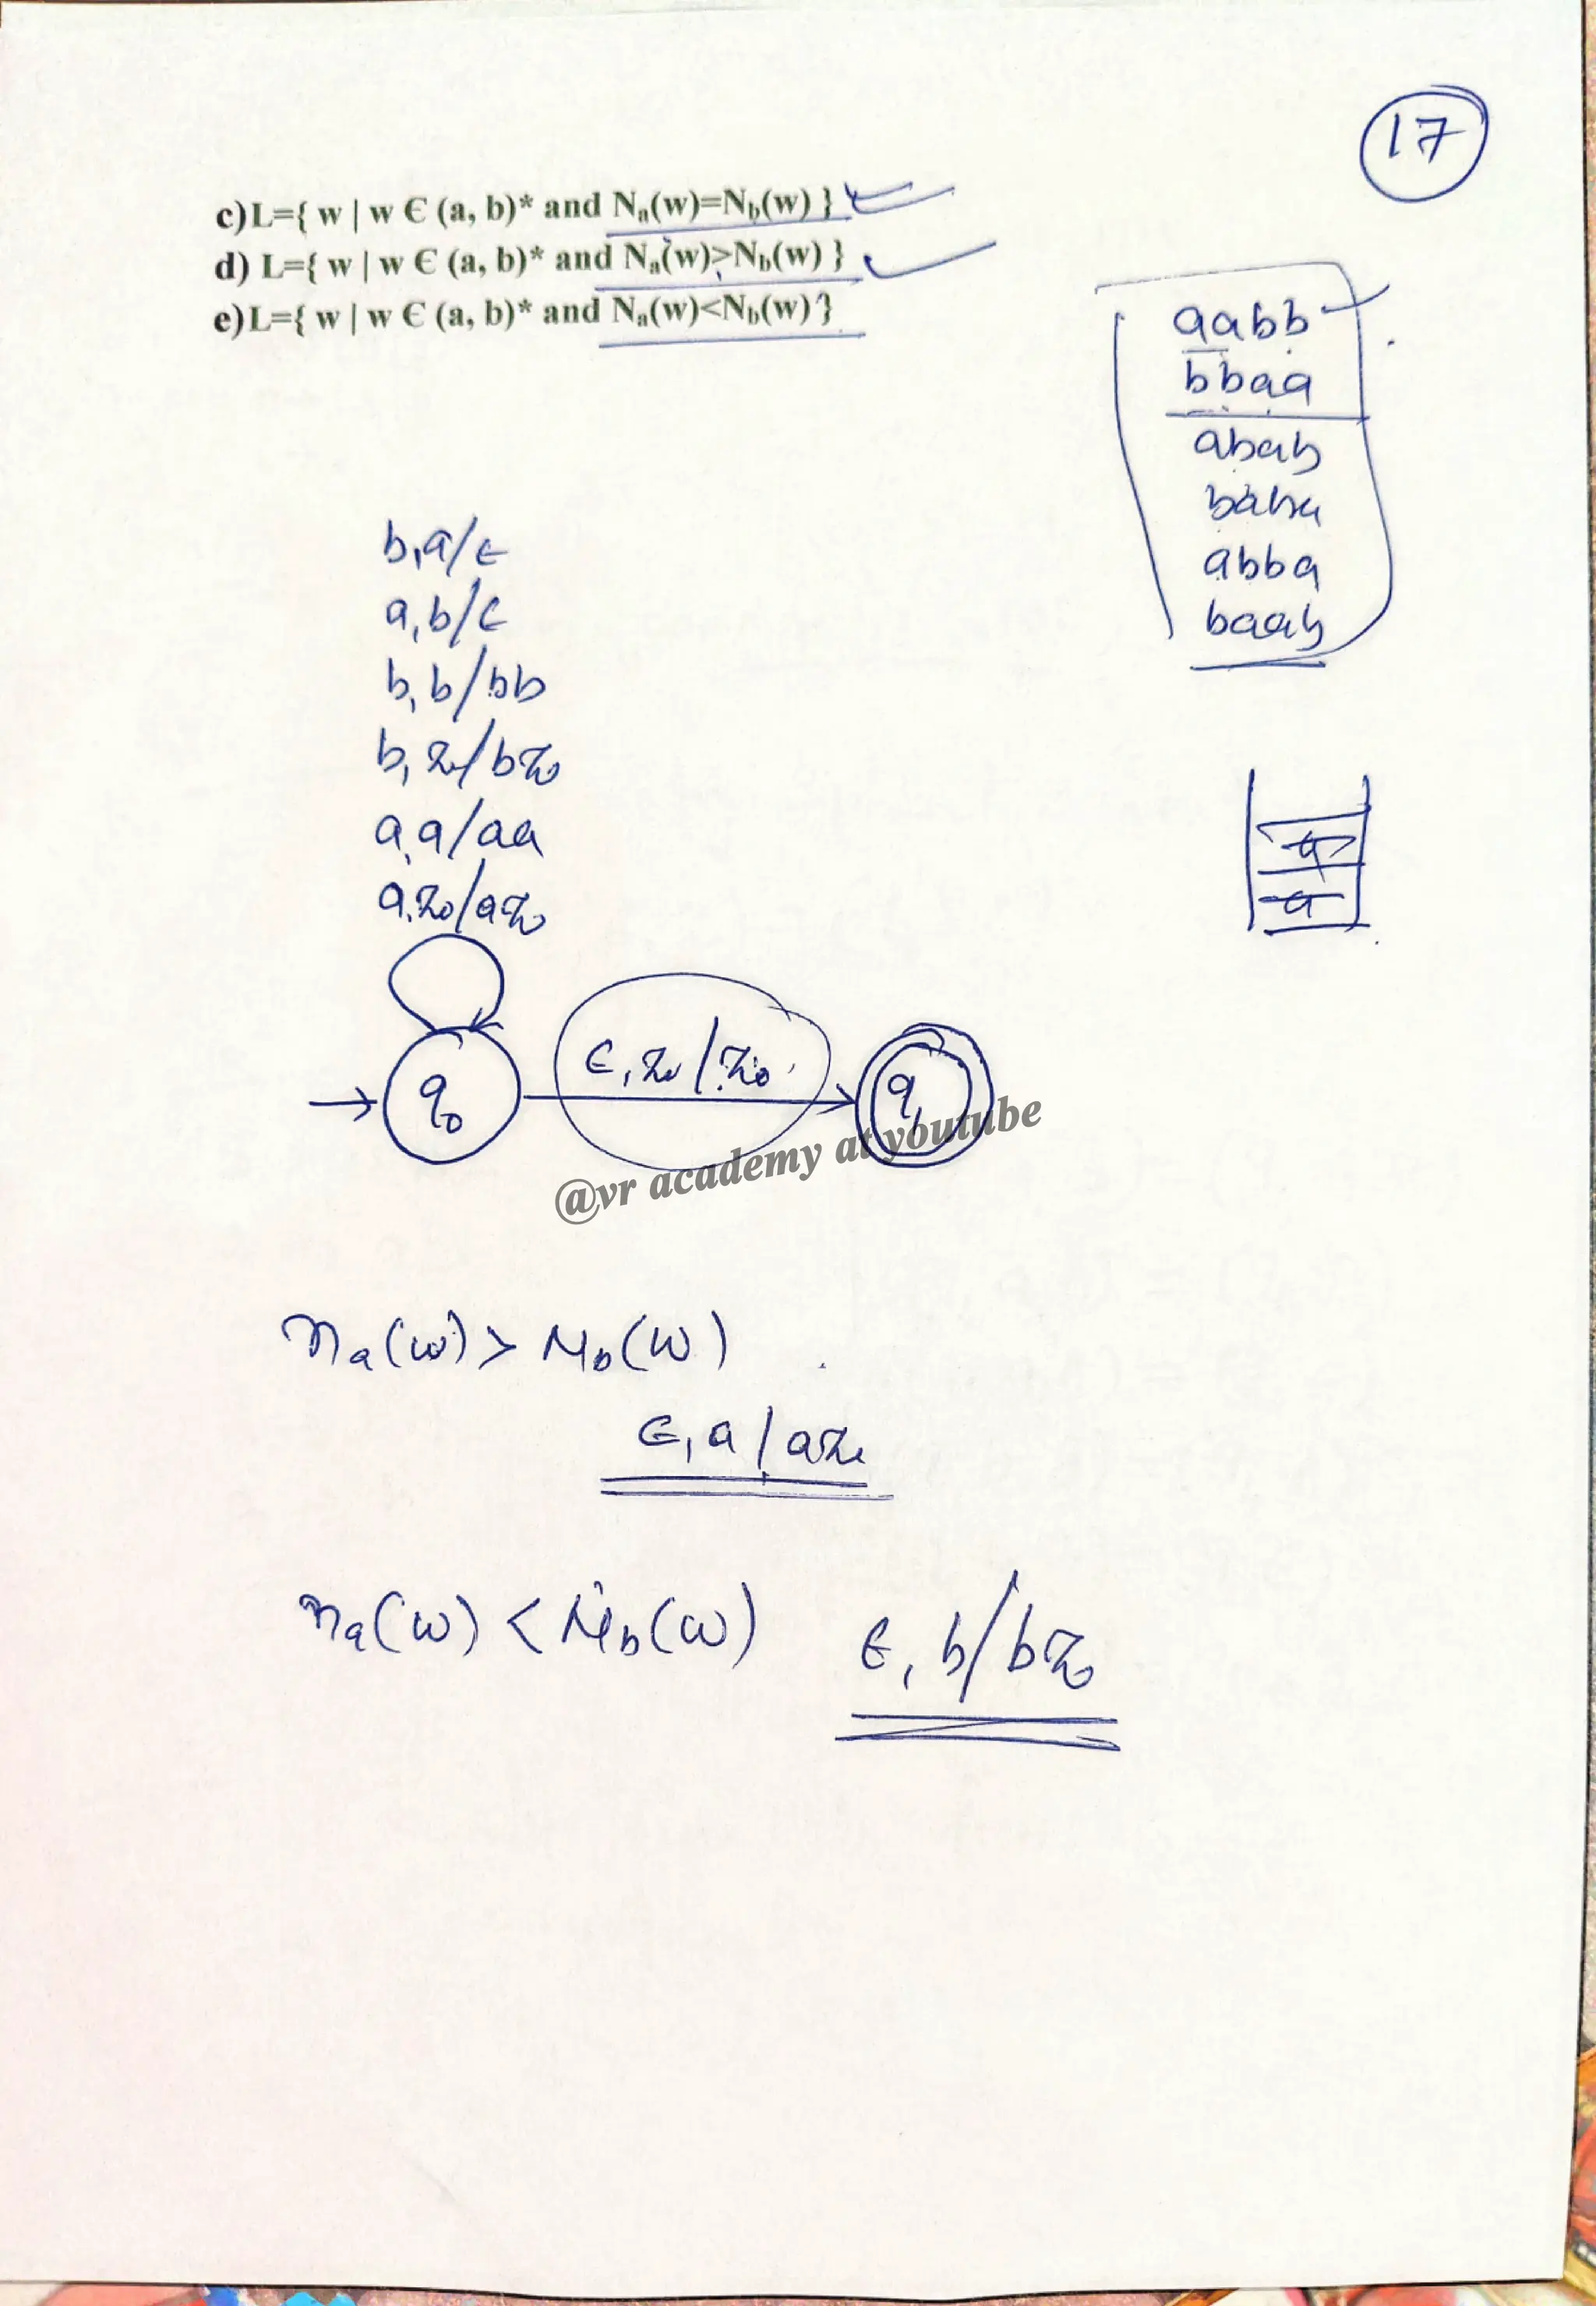 17
c)L={ w | w Є (a, b)* and Nₐ(w)=N_b(w) }
d) L={ w | w Є (a, b)* and Nₐ(w)>N_b(w) }
e)L={ w | w Є (a, b)* and Nₐ(w)<N_b(w) }
aabb
bbaa
abab
baba
abba
baab
b,a/ε
a,b/ε
b,b/bb
b,z₀/bz₀
a,a/aa
a,z₀/az₀
a
a
ε,z₀/z₀
q₀
q₁
@vr academy at youtube
nₐ(w) > N_b(w)
ε,a/az₀
nₐ(w) < N_b(w)
ε,b/bz₀